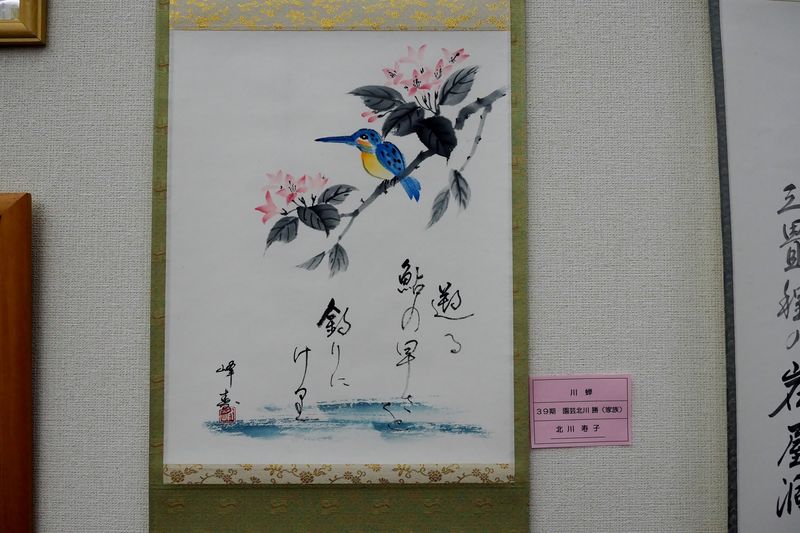 遡る
鮎の早さを
釣りに
けり
峰寿
川蝉
39期 園芸北川勝(家族)
北川寿子
三畳程の
岩屋洞